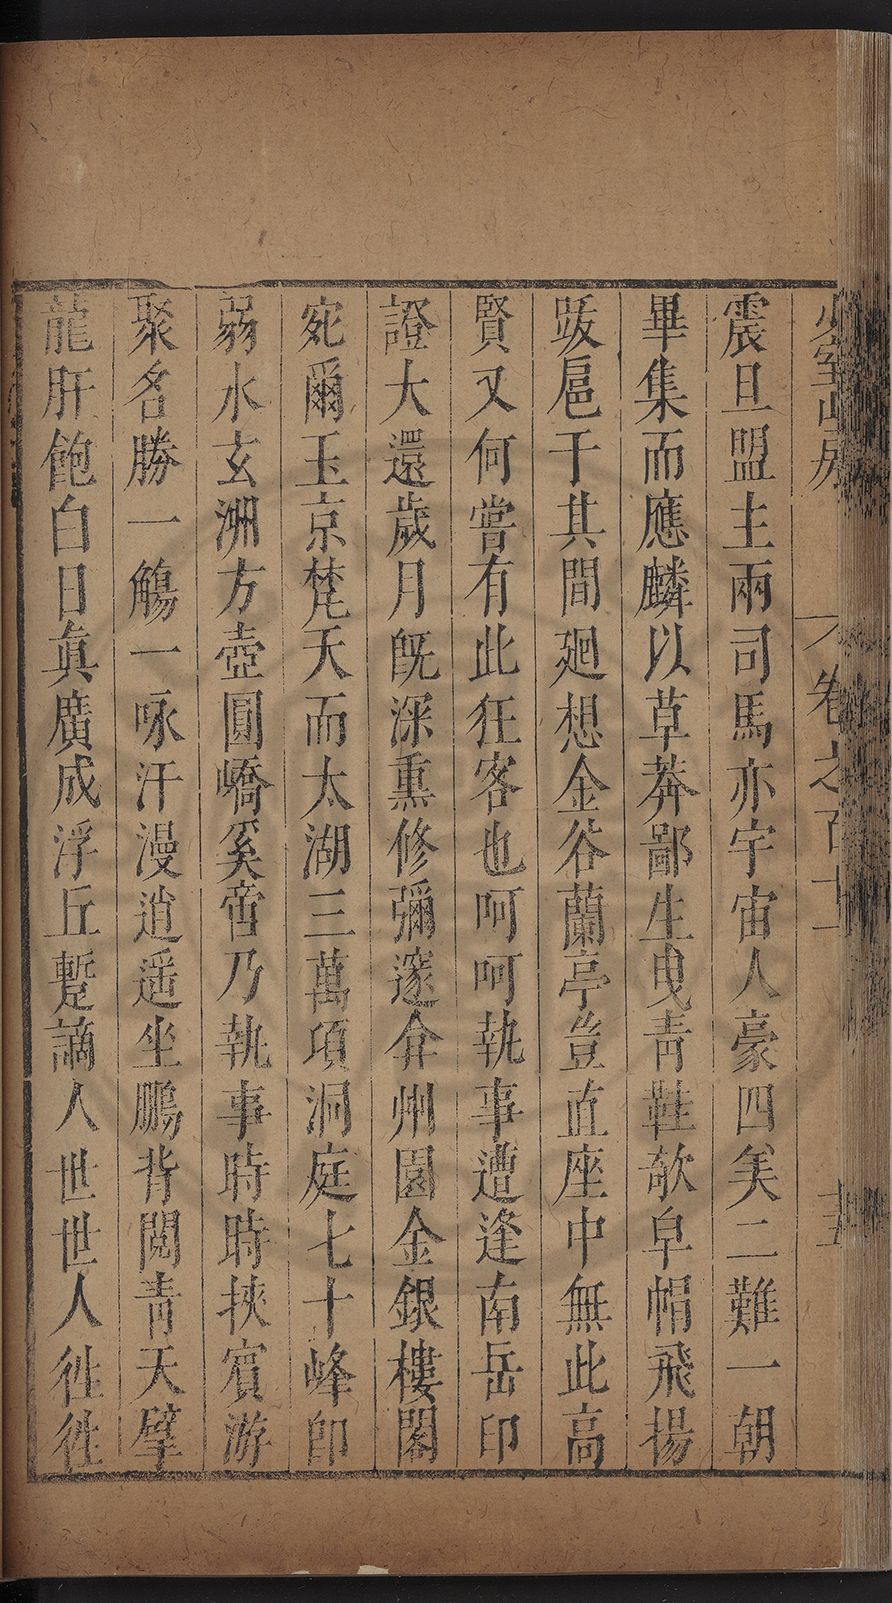 少室山房
卷之百十
震旦盟主兩司馬亦宇宙人豪四美二難一朝
畢集而應麟以草莽鄙生曳靑鞋欹皁帽飛揚
跋扈于其間廻想金谷蘭亭豈直座中無此高
賢又何嘗有此狂客也呵呵執事遭逢南岳印
證大還歲月旣深熏修彌邃弇州園金銀樓閣
宛爾玉京梵天而太湖三萬項洞庭七十峰卽
弱水玄洲方壺圓嶠奚啻乃執事時時挾賓游
聚名勝一觴一咏汗漫逍遥坐鵬背閱靑天擘
龍肝飽白日眞廣成浮丘蹔謫人世世人徃徃